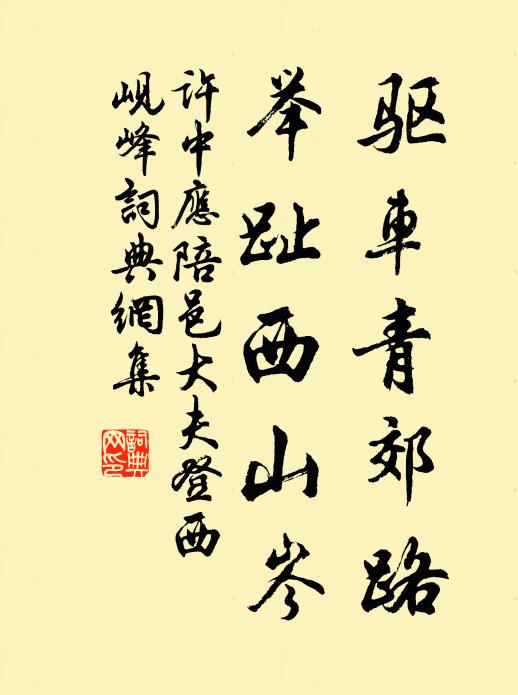 驱車青郊路
举趾西山岑
許中應陪邑大夫登西
峴峰詞典網集
詞典網印